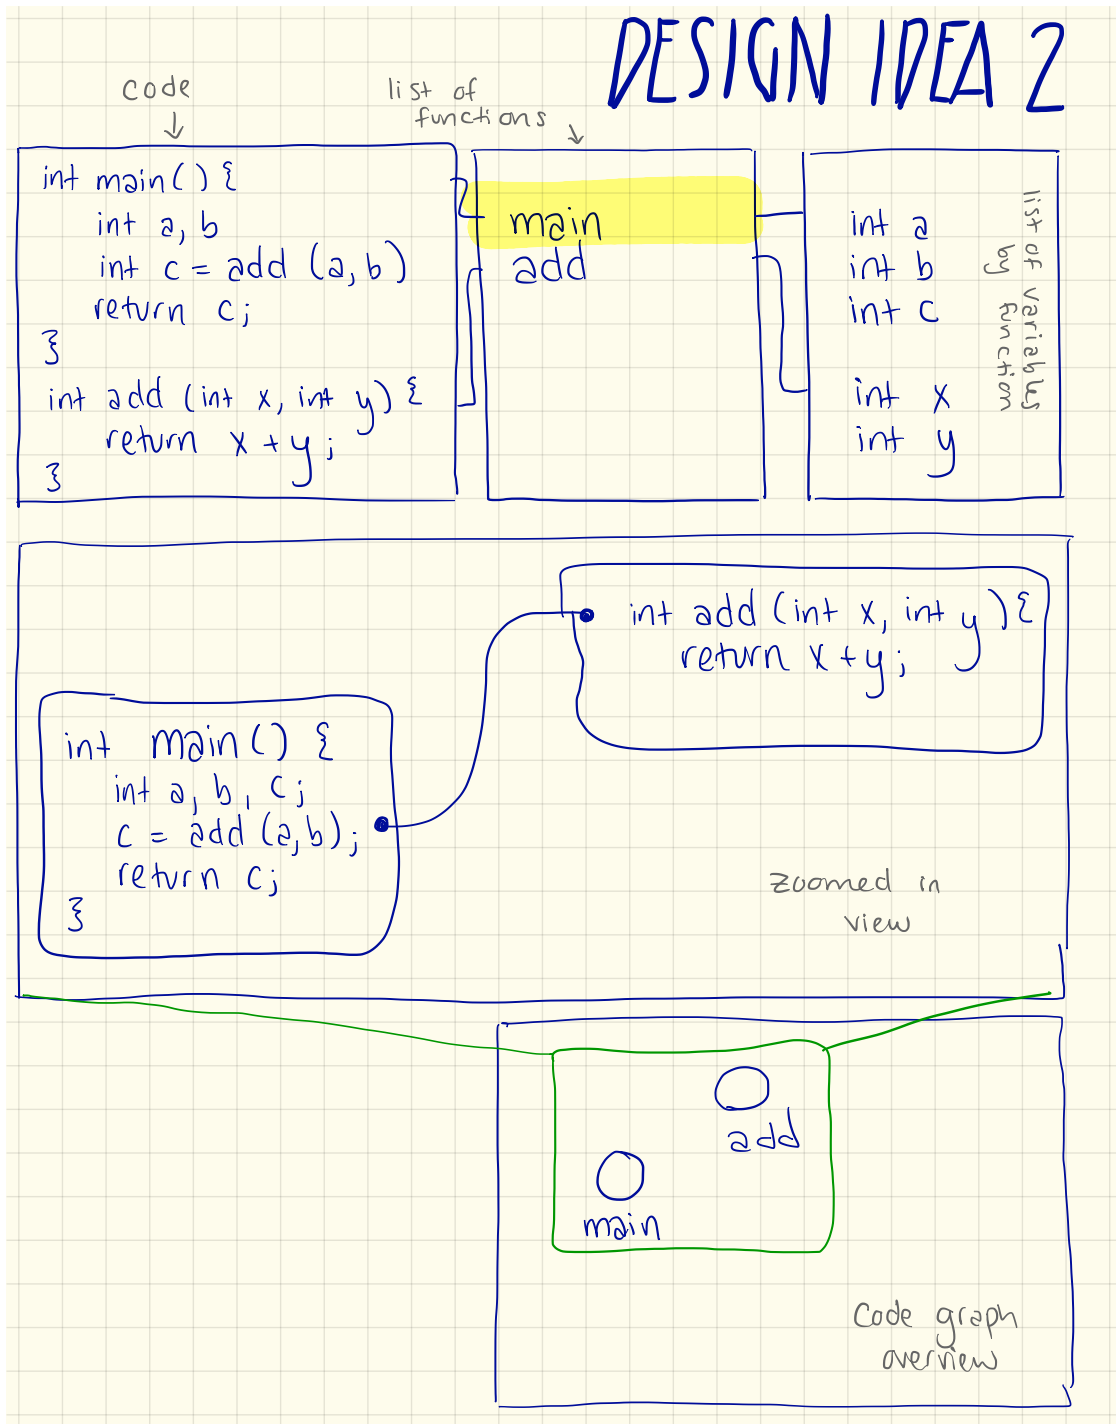 DESIGN IDEA 2
code
list of
functions
int main() {
int a, b
int c = add (a, b)
return c;
}
int add (int x, int y) {
return x + y;
}
main
add
int a
int b
int c
int x
int y
list of variables
by function
int add (int x, int y) {
return x + y;
int main() {
int a, b, c;
c = add (a, b);
return c;
}
zoomed in
view
add
main
Code graph
overview